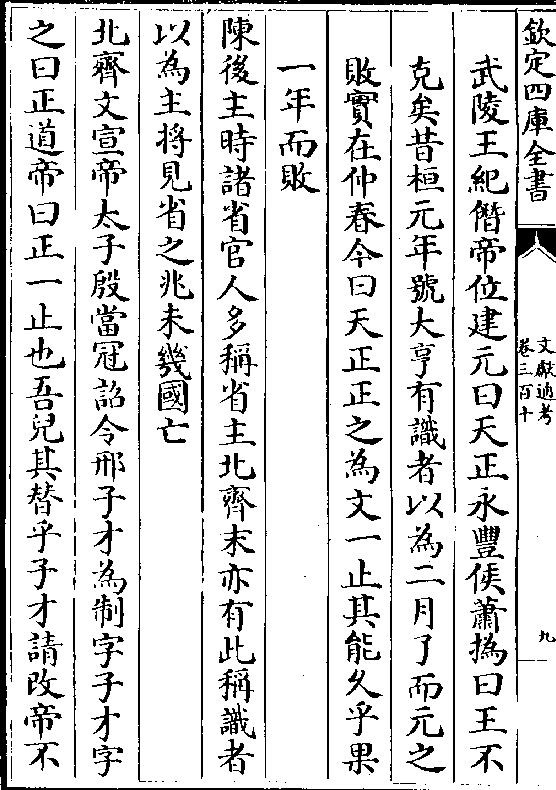 欽定四庫全書
文獻通考
卷三百十
九
武陵王紀僭帝位建元曰天正永豐侯蕭撝曰王不
克矣昔桓元年號大亨有識者以為二月了而元之
敗實在仲春今曰天正正之為文一止其能久乎果
一年而敗
陳後主時諸省官人多稱省主北齊末亦有此稱識者
以為主將見省之兆未幾國亡
北齊文宣帝太子殷當冠詔令邢子才為制字子才字
之曰正道帝曰正一止也吾兒其替乎子才請改帝不